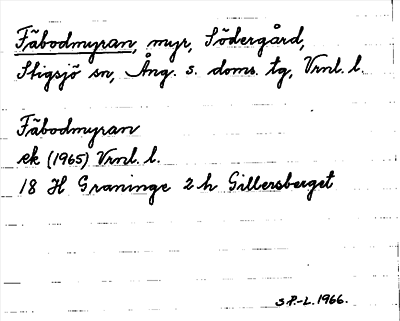 Fäbodmyran, myr, Södergård,
Stigsjö sn, Ång. s. doms. tg, Vrnl. l.
Fäbodmyran
ek (1965) Vrnl. l.
18 H Graninge 2 h Gillersberget
S.P.-L. 1966.